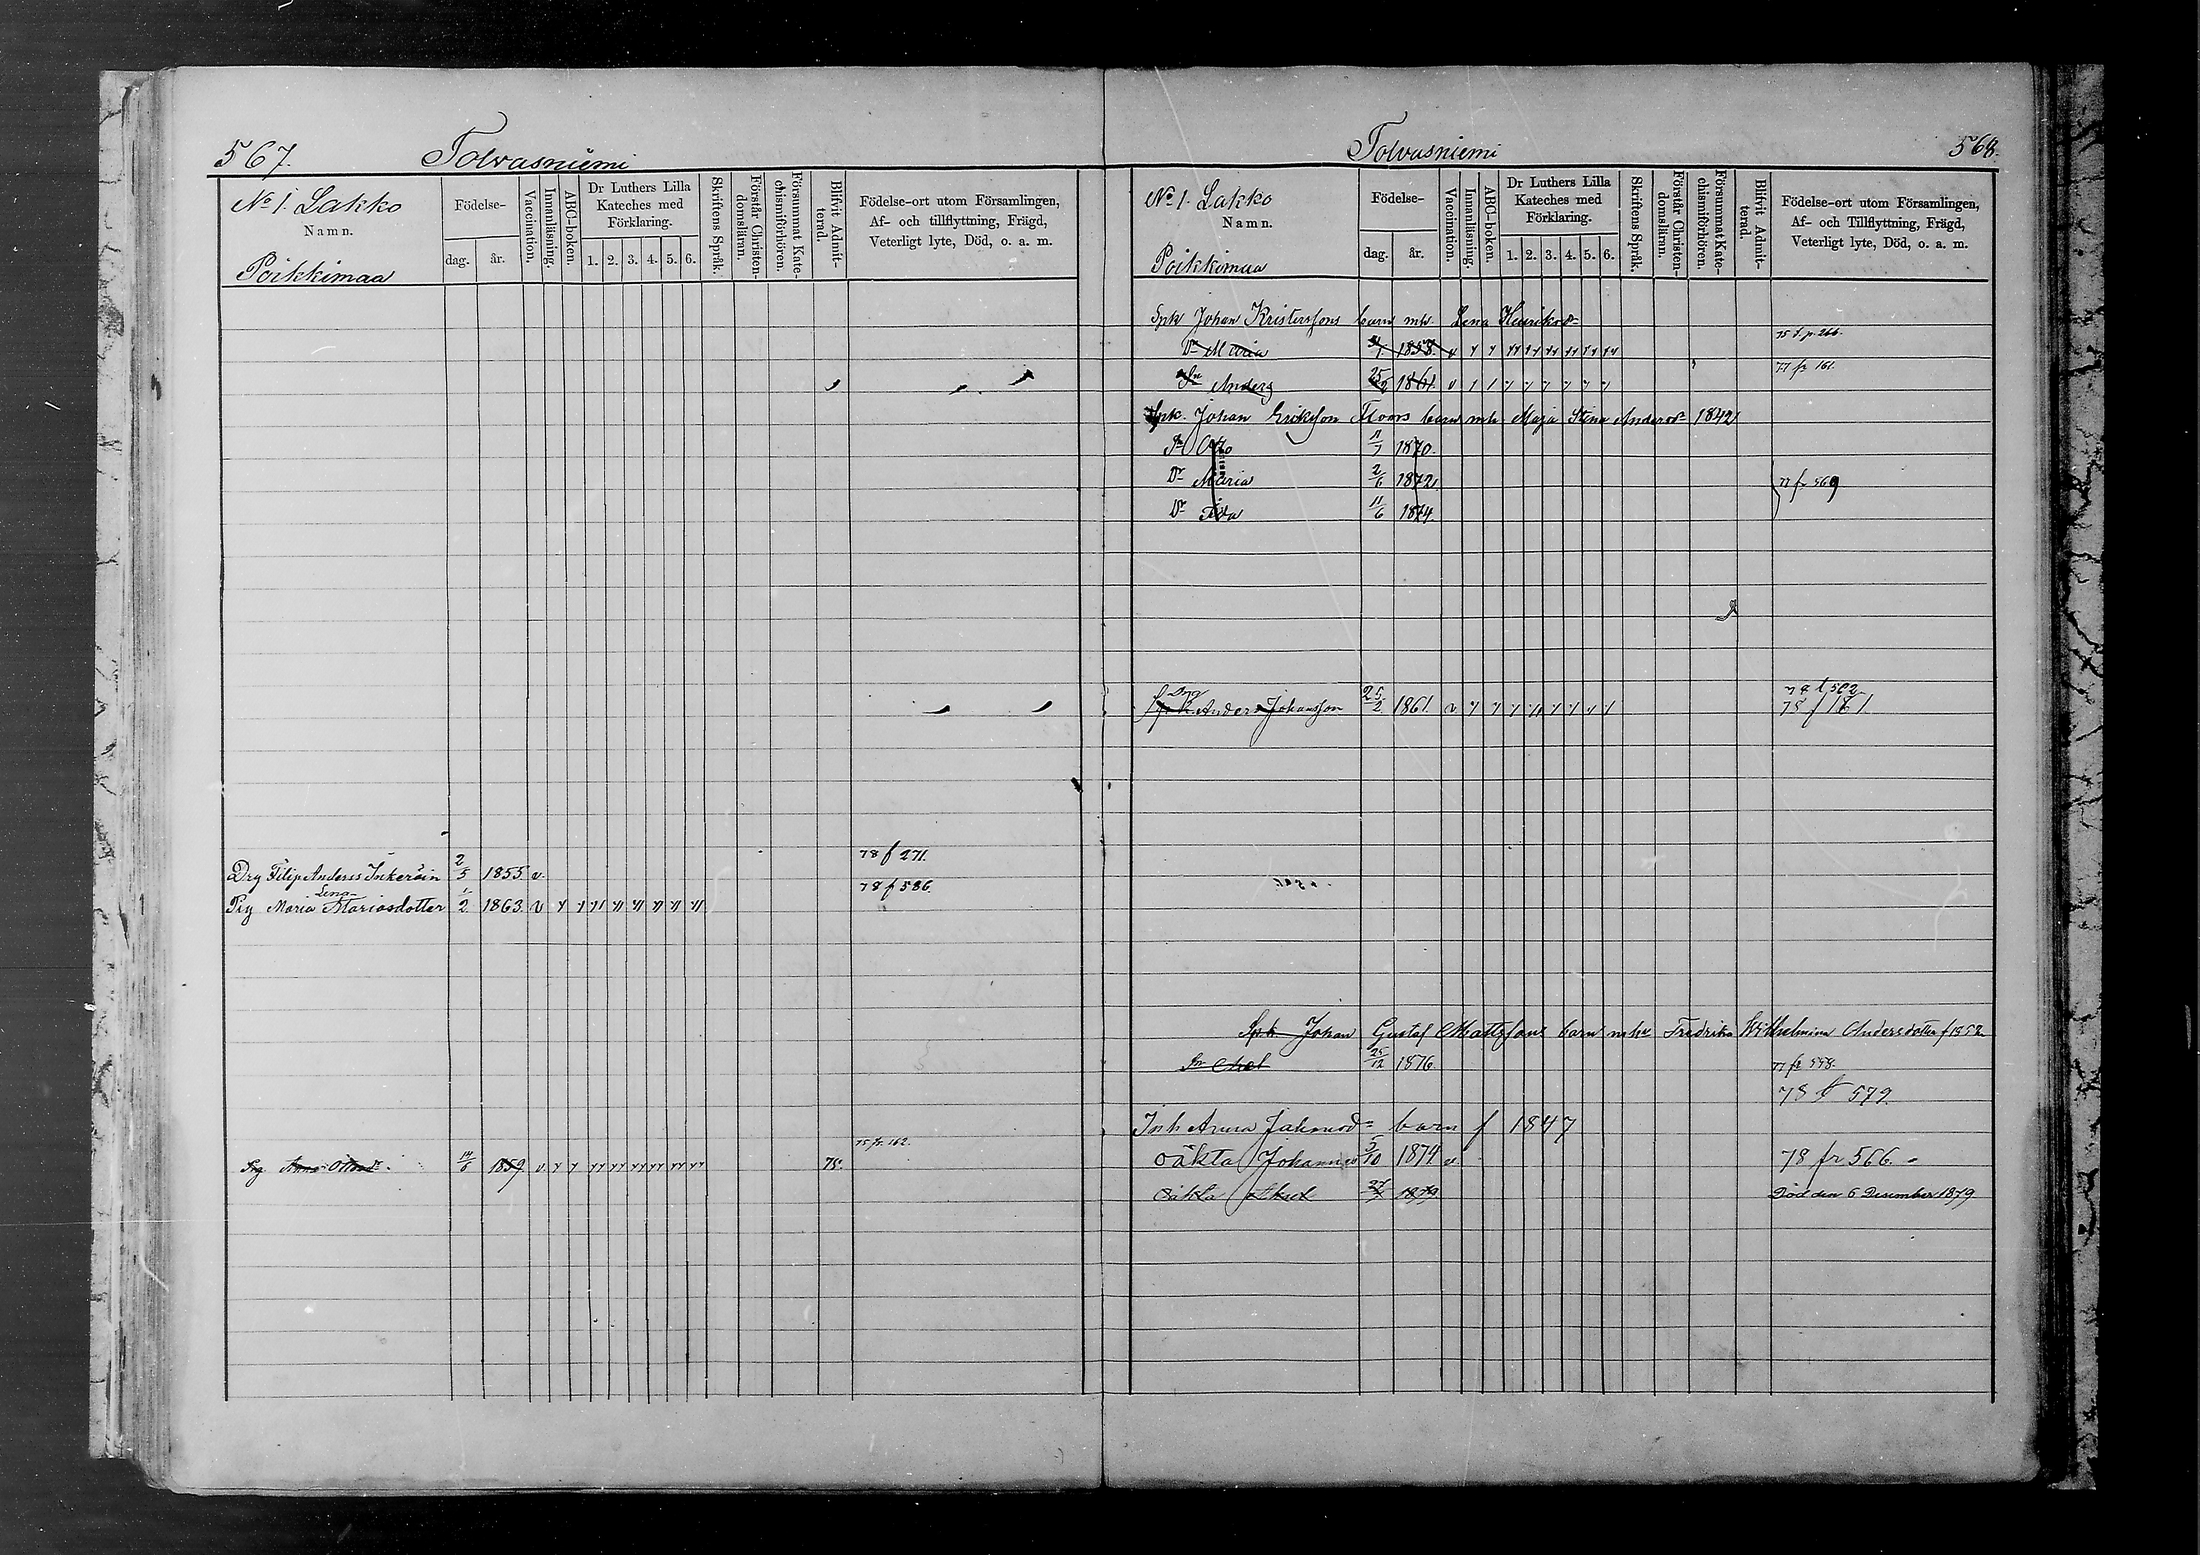 567. Tolvasniemi
No 1. Lakko
Namn.
Poikkimaa
Födelse-
dag. år.
Vaccination.
Innanläsning.
ABC-boken.
Dr Luthers Lilla Kateches med Förklaring.
1. 2. 3. 4. 5. 6.
Skriftens Språk.
Förstår Christendomsläran.
Försummat Katechismiförhören.
Blifvit Admitterad.
Födelse-ort utom Församlingen,
Af- och tillflyttning, Frägd,
Veterligt lyte, Död, o. a. m.
78 f 271.
Drg Filip Anders Inkeröin 2/5 1855 v
78 f 586.
Lena
Pig Maria Mariasdotter 1/2 1863 v
75 fr 162.
Pig Anna Ottosdr 14/6 1859 v 75.
Tolvasniemi 568.
No 1. Lakko
Namn.
Poikkimaa
Födelse-
dag. år.
Vaccination.
Innanläsning.
ABC-boken.
Dr Luthers Lilla Kateches med Förklaring.
1. 2. 3. 4. 5. 6.
Skriftens Språk.
Förstår Christendomsläran.
Försummat Katechismiförhören.
Blifvit Admitterad.
Födelse-ort utom Församlingen,
Af- och Tillflyttning, Frägd,
Veterligt lyte, Död, o. a. m.
Spk Johan Kristerssons barn mh. Lena Henriksd-
Dr Maria 1858. v 75 t. p. 266.
Sn Anders 25/2 1861 v 77 fr 161.
Spk. Johan Eriksson Floors barn mh. Maja Stina Andersd- 1842
Sn Otto 11/7 1870.
Dr Maria 2/6 1872. 77 fr 569
Dr Ida 11/6 1874.
Drg 78 t 502
Spk Anders Johansson 25/2 1861. v 75 f 161
Spk Johan Gustaf Mattssons barn mhu Fredrika Wilhelmina Andersdotter f 1852
Sn Axel 25/12 1876 77 fr 558.
78 t 579.
Inh Anna Johansd- barn f 1847
oäkta Johannes 5/10 1874 v. 78 fr 566.
oäkta Axel 27/7 1879 Död den 6 Desember 1879